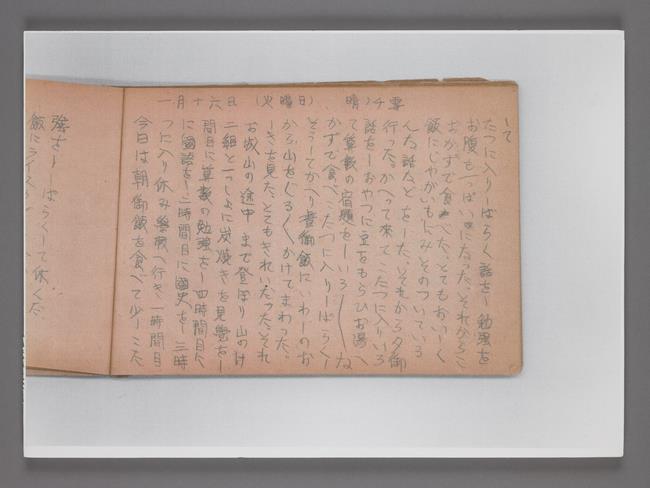 一月十六日(火曜日)晴ノチ雪
今日は朝御飯を食べて少しこた
つに入り休み學校へ行き一時間目
に國語をし二時間目に國史をし三時
間目に算數の勉強をし四時間目に
二組といっしょに炭焼きを見學をし
お城山の途中まで登り山のけ
しきを見た。とてもきれいだった。それ
から山をぐるぐるかけてまわった。
そしてかへり晝御飯にいわしのお
かずで食べこたつに入りしばらくし
て算數の宿題をしいろ〳〵な
話をしおやつに豆をもらひお湯へ
行った。かへって来てこたつに入りいろ
んな話などをした。それから夕御
飯にじゃがいもにみそのついている
おかずで食べた。とてもおいしく
お腹もいっぱいになった。それからこ
たつに入りしばらく話をし勉強を
して
飯にライス
強をし しばらくして休